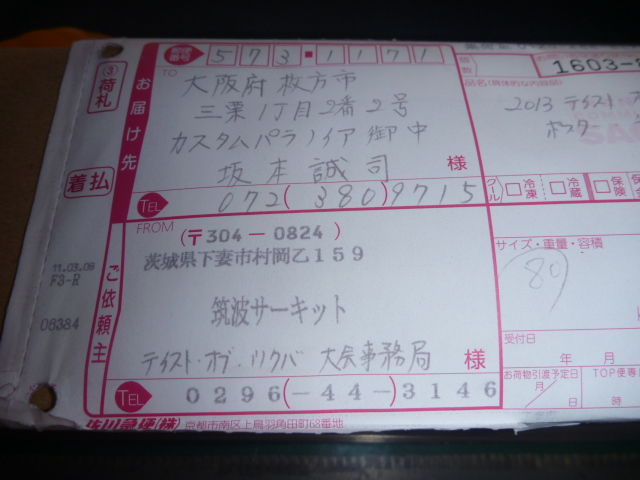 郵便番号 573-1171
1603-
個数
品名(具体的な内容品)
③荷札
お届け先
TO
大阪府枚方市
三栗1丁目2番2号
カスタムパラノイア御中
坂本誠司 様
2013 テイスト
着払
TEL 072(380)9715
クール 冷凍 冷蔵 保険
FROM
(〒304-0824)
茨城県下妻市村岡乙159
筑波サーキット
テイスト・オブ・ツクバ 大会事務局 様
ご依頼主
11.03.08
F3-R
06384
サイズ・重量・容積
80
受付日
年 月
お荷物引渡予定日
月 日 時
TOP便専
TEL 0296(-44-3146
佐川急便(株) 京都市南区上鳥羽角田町68番地